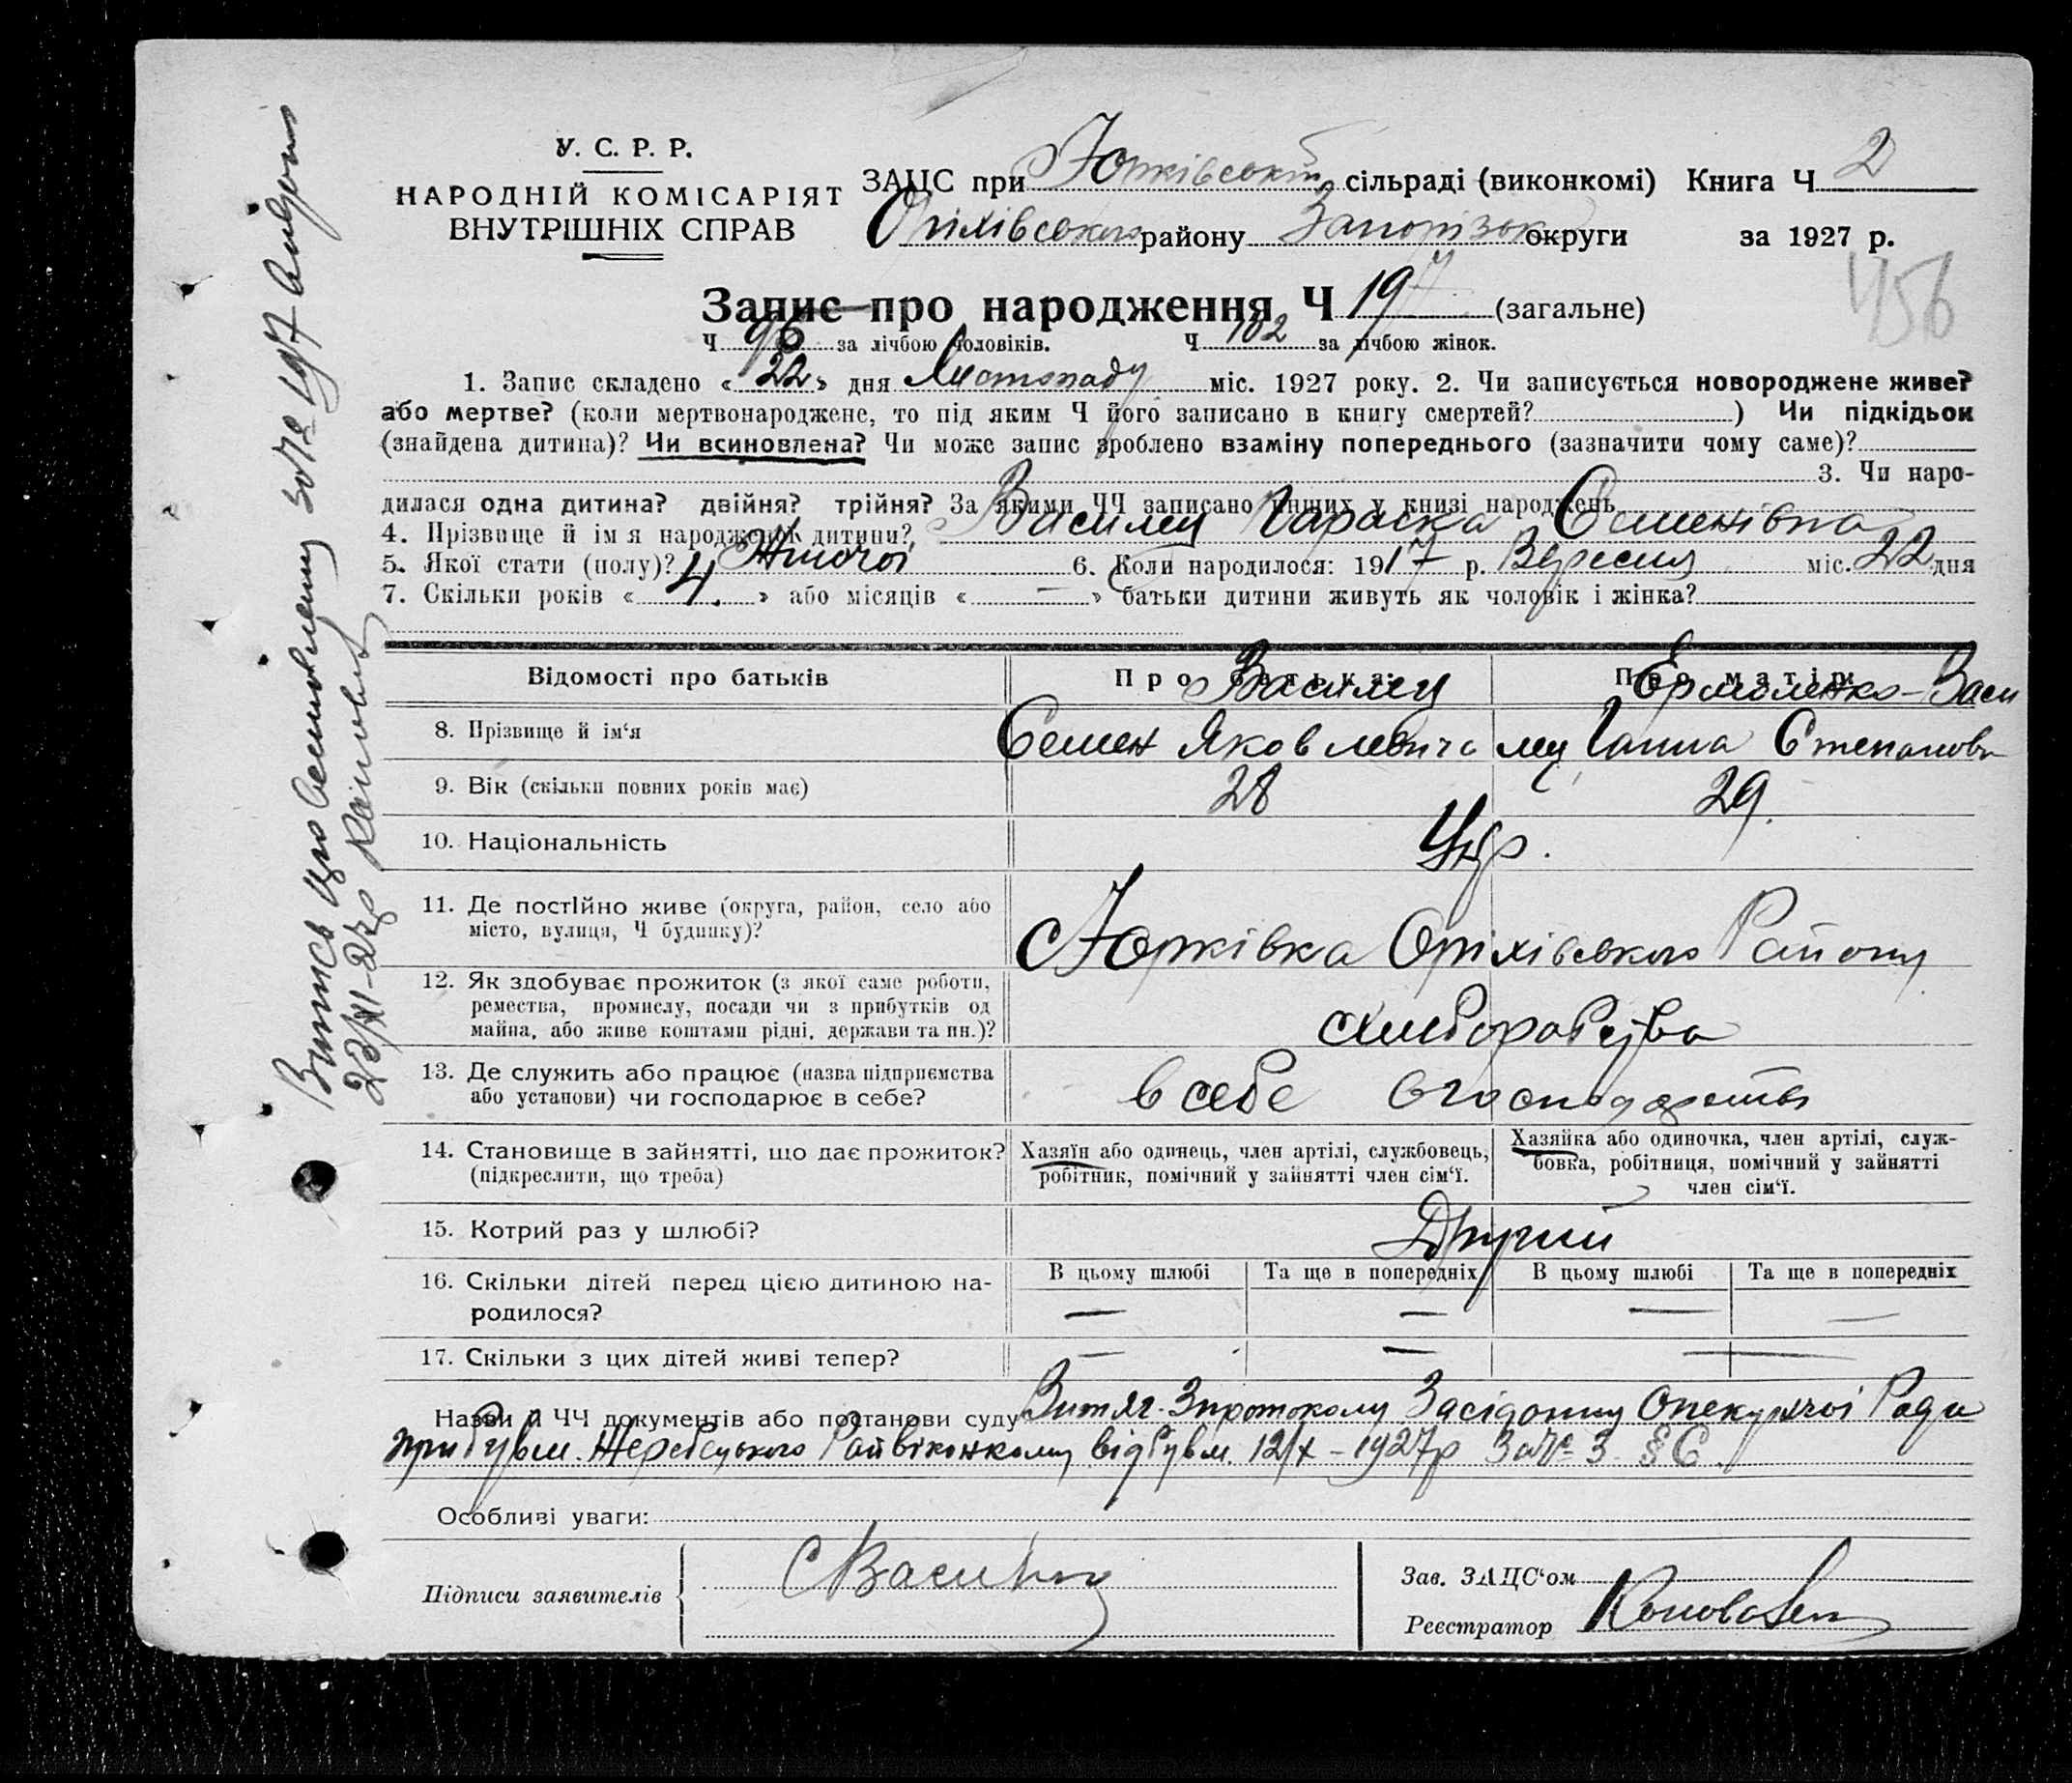 У. С. Р. Р.
НАРОДНІЙ КОМІСАРІЯТ
ВНУТРІШНІХ СПРАВ
ЗАЦС при Юрківській сільраді (виконкомі) Книга Ч 2
Оріхівського району Запорізьк округи за 1927 р.
456
Запис про народження Ч 197 (загальне)
Ч 96 за лічбою чоловіків. Ч 102 за лічбою жінок.
1. Запис складено « 22 » дня Листопаду міс. 1927 року. 2. Чи записується новороджене живе?
або мертве? (коли мертвонароджене, то під яким Ч його записано в книгу смертей? ) Чи підкідьок
(знайдена дитина)? Чи всиновлена? Чи може запис зроблено взаміну попереднього (зазначити чому саме)?
3. Чи наро-
дилася одна дитина? двійня? трійня? За якими ЧЧ записано инших у книзі народжень
4. Прізвище й ім'я народженої дитини? Василец Параска Семенівна
5. Якої стати (полу)? Жіночої 6. Коли народилося: 1917 р. Вересня міс. 22 дня
7. Скільки років « 4. » або місяців « — » батьки дитини живуть як чоловік і жінка?
Відомості про батьків Про батька: Про матір:
Василец Ермоленко-Васи
8. Прізвище й ім'я Семен Яковлевич лец Ганна Степанов
9. Вік (скільки повних років має) 28 29.
10. Національність Укр.
11. Де постійно живе (округа, район, село або
місто, вулиця, Ч будинку)?
с Юрківка Оріхівського Району
12. Як здобуває прожиток (з якої саме роботи,
ремества, промислу, посади чи з прибутків од
майна, або живе коштами рідні, держави та ин.)?
хлиборобства
13. Де служить або працює (назва підприємства
або установи) чи господарює в себе?
в себе в господарстві
14. Становище в зайнятті, що дає прожиток?
(підкреслити, що треба)
Хазяїн або одинець, член артілі, службовець,
робітник, помічний у зайнятті член сім'ї.
Хазяйка або одиночка, член артілі, служ-
бовка, робітниця, помічний у зайнятті
член сім'ї.
15. Котрий раз у шлюбі? Другий
16. Скільки дітей перед цією дитиною на-
родилося?
В цьому шлюбі Та ще в попередніх В цьому шлюбі Та ще в попередніх
— — — —
17. Скільки з цих дітей живі тепер? — — —
Назви й ЧЧ документів або постанови суду Витяг з протокому Засідання Опекунчої Ради
при бувш. Жеребецького Райвіконкому відбувш. 12/X – 1927р За № 3 § 6
Особливі уваги:
Підписи заявителів СВасилец
Зав. ЗАЦС'ом
Реєстратор Коновален
Випись про Всиновлення за № 197
23/XI-27р